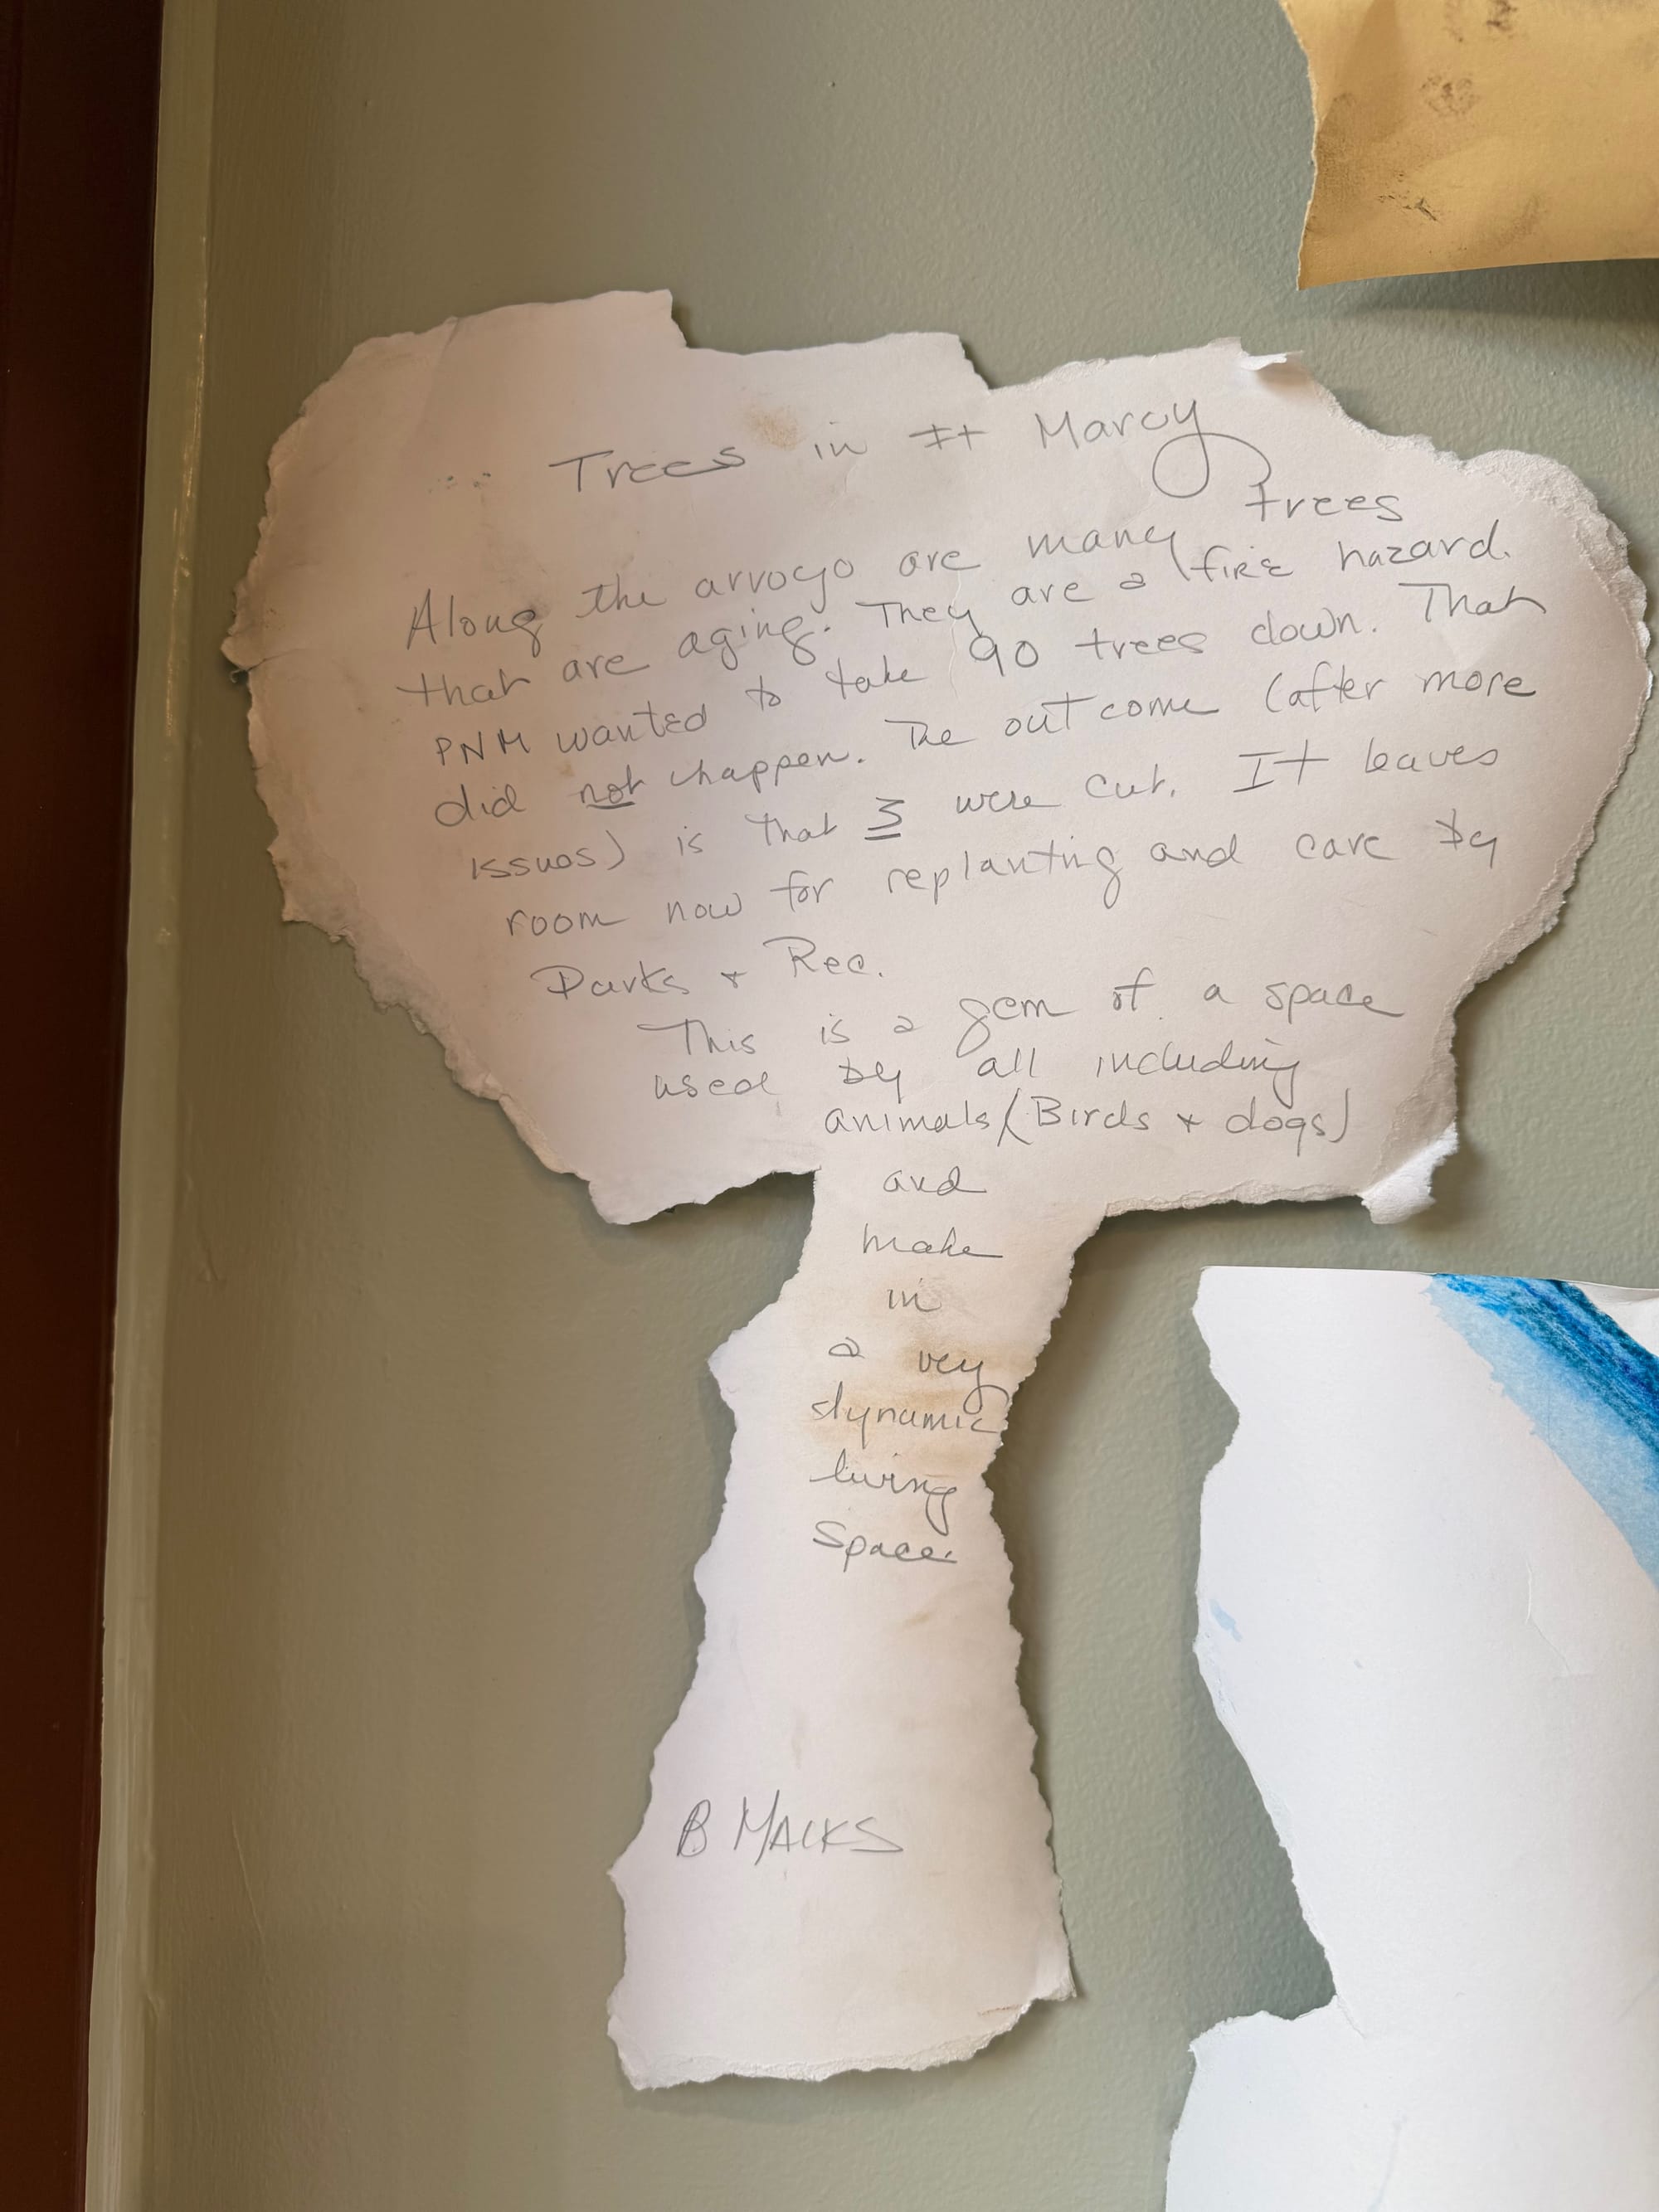 Trees in Ft Marcy
Along the arroyo are many trees
that are aging. They are a fire hazard.
PNM wanted to take 90 trees down. That
did not happen. The outcome (after more
issues) is that 3 were cut. It leaves
room now for replanting and care by
Parks + Rec.
This is a gem of a space
used by all including
animals (Birds + dogs)
and
make
in
a very
dynamic
living
space.
B MACKS